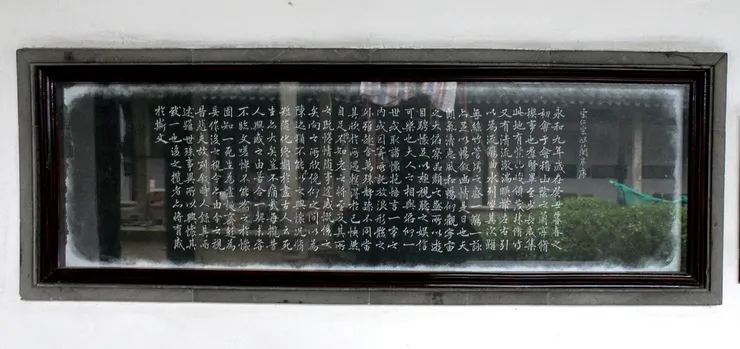 蘭亭序
永和九年歲在癸丑暮春之
初會于會稽山陰之蘭亭脩
禊事也羣賢畢至少長咸集
此地有崇山峻領茂林脩竹
又有清流激湍暎帶左右引
以為流觴曲水列坐其次雖
無絲竹管絃之盛一觴一詠
亦足以暢敘幽情是日也天
朗氣清惠風和暢仰觀宇宙
之大俯察品類之盛所以遊
目騁懷足以極視聽之娛信
可樂也夫人之相與俯仰一
世或取諸懷抱悟言一室之
內或因寄所託放浪形骸之
外雖趣舍萬殊靜躁不同當
其欣於所遇暫得於己快然
自足不知老之將至及其所
之既惓情隨事遷感慨係之
矣向之所欣俛仰之間以為
陳迹猶不能不以之興懷況脩
短隨化終期於盡古人云死
生亦大矣豈不痛哉每攬昔
人興感之由若合一契未嘗
不臨文嗟悼不能喻之於懷
固知一死生為虛誕齊彭殤為
妄作後之視今亦由今之視
昔悲夫故列敘時人錄其所
述雖世殊事異所以興懷其
致一也後之攬者亦將有感
於斯文